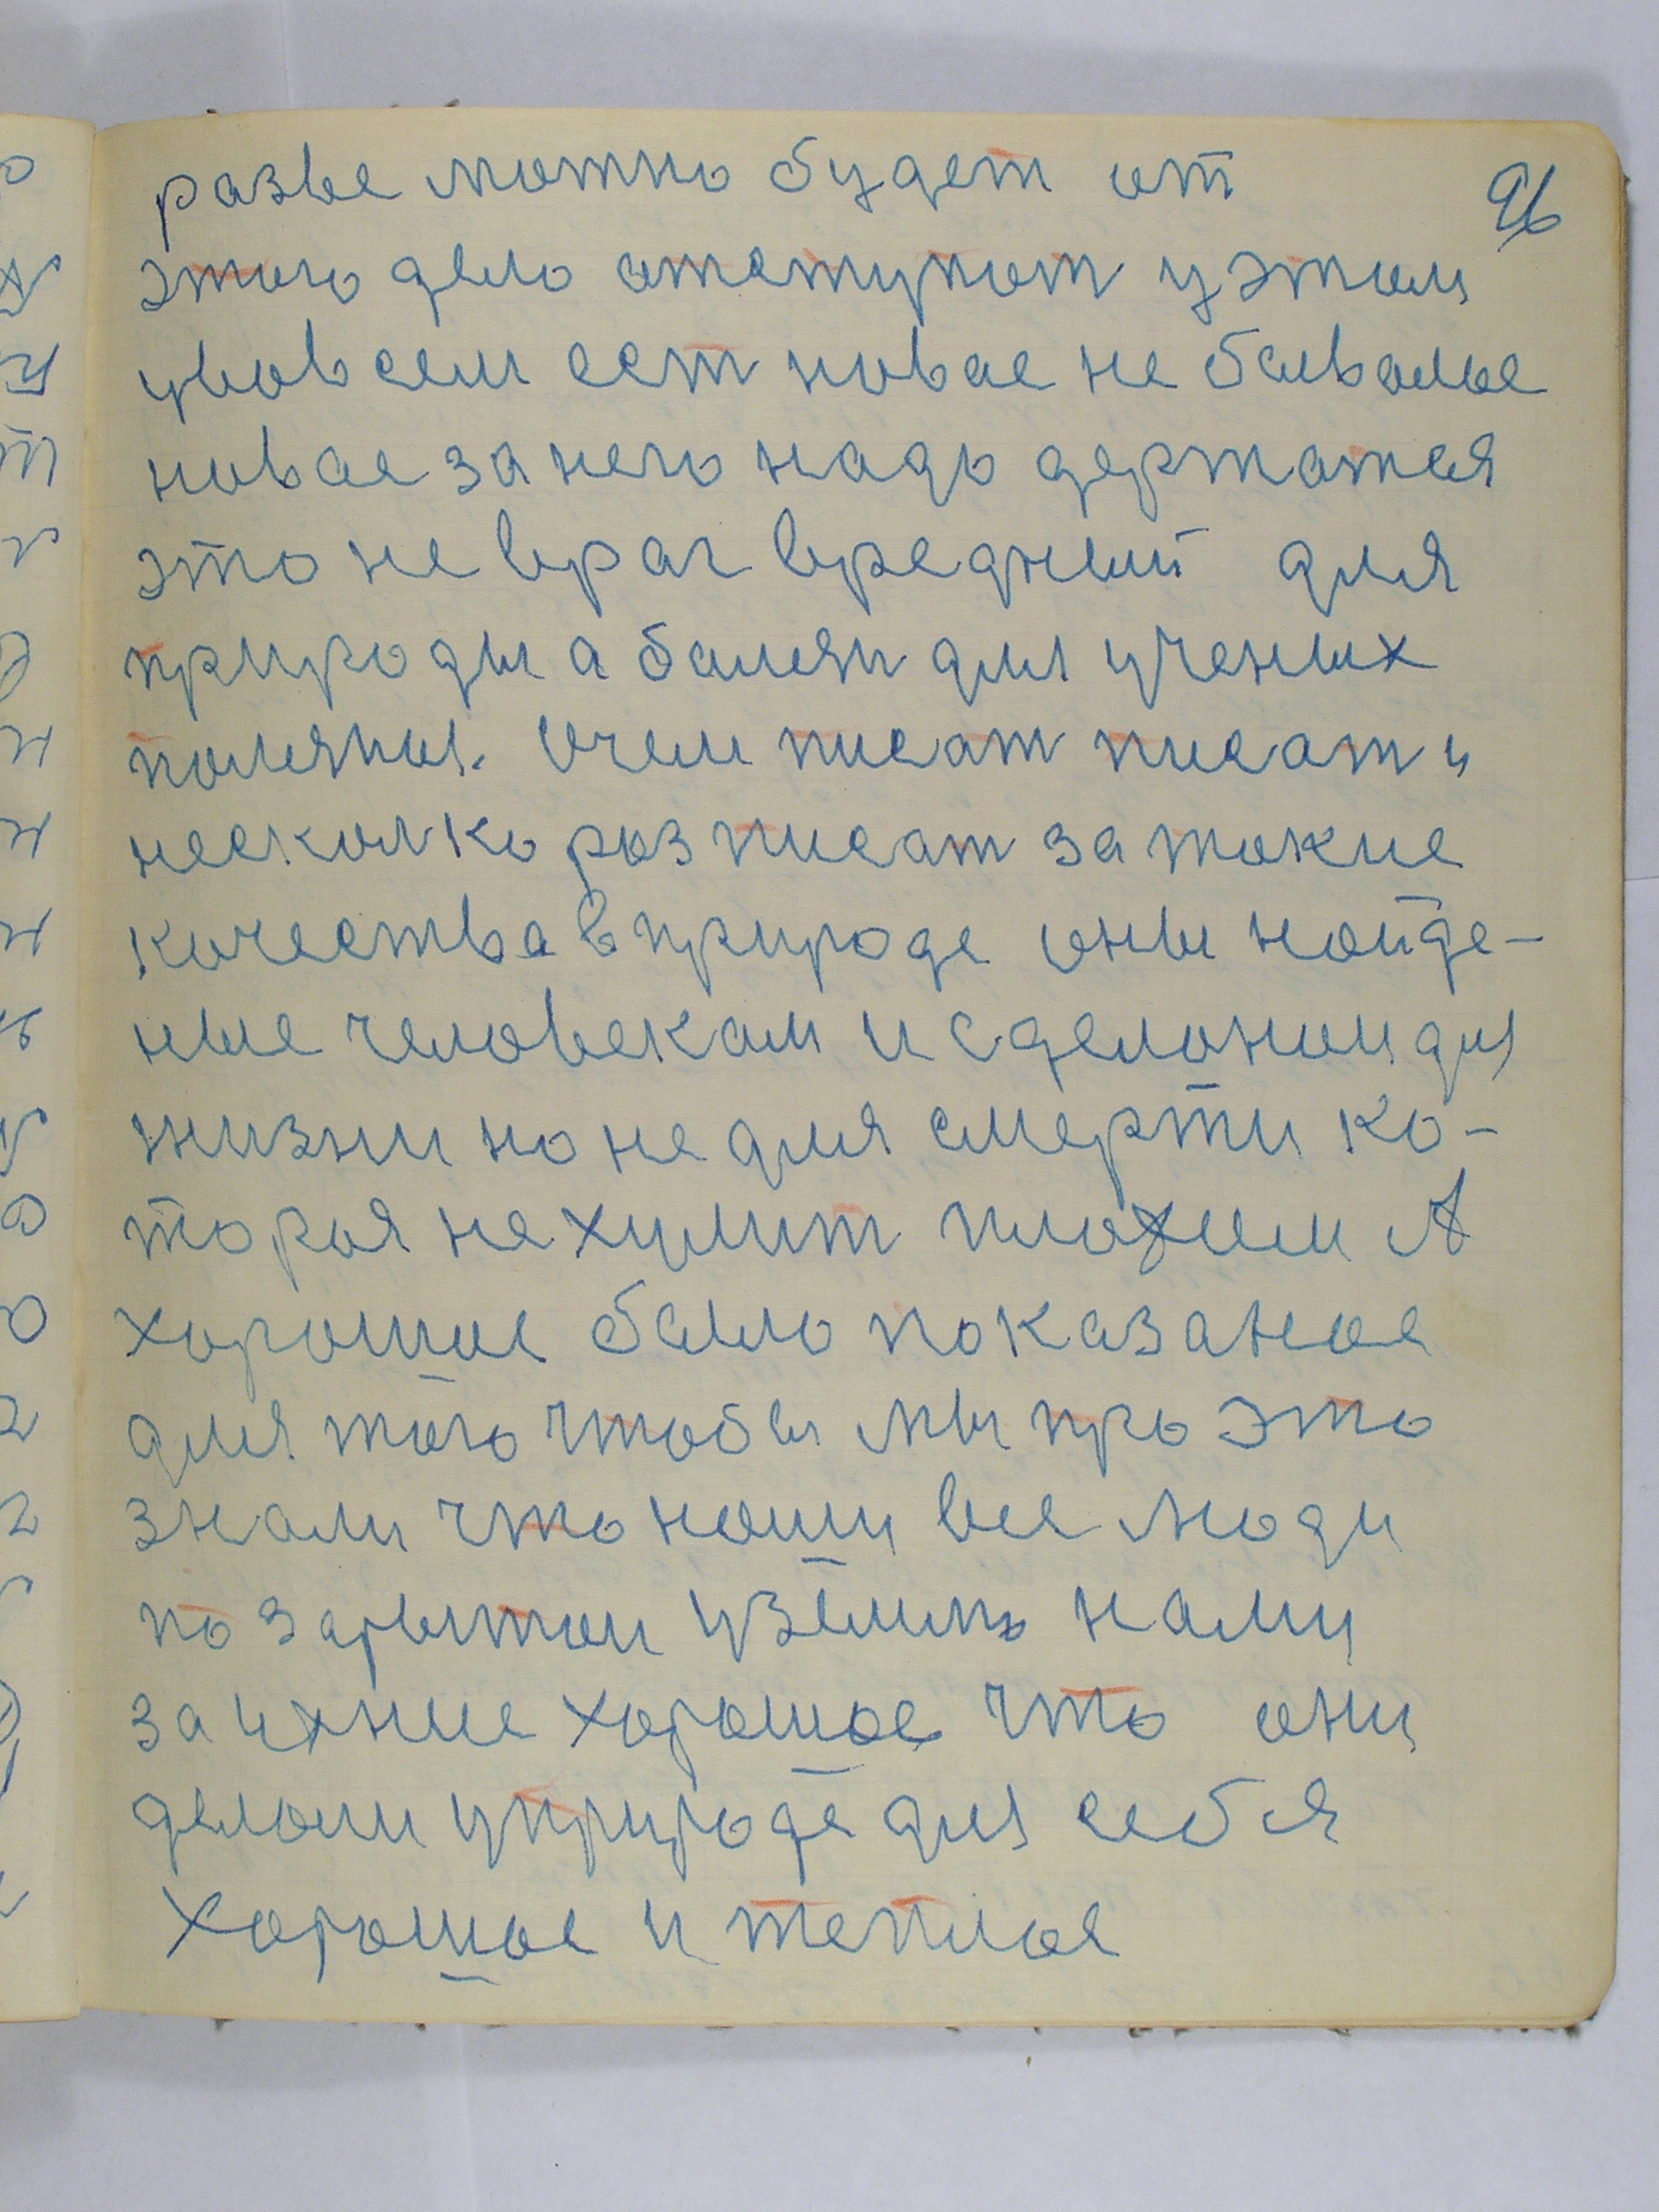 96
разве можно будет от
этого дело отступот у этом
увовсем ест новае не бывалые
новае за него надо держатся
это не враг вредный для
природы а
для ученых
Очем писат писат и
несколко роз писат за токие
кочества в природе оны нойде-
ные человекам и сделоныи для
жизни но не для смерти ко-
торая не хулит плохим А
хорошое было показаное
для того чтобы мы про это
знали что ноши все люди
нами
за ихние хорошое что они
делоли у природе для себя
хорошое и теплое